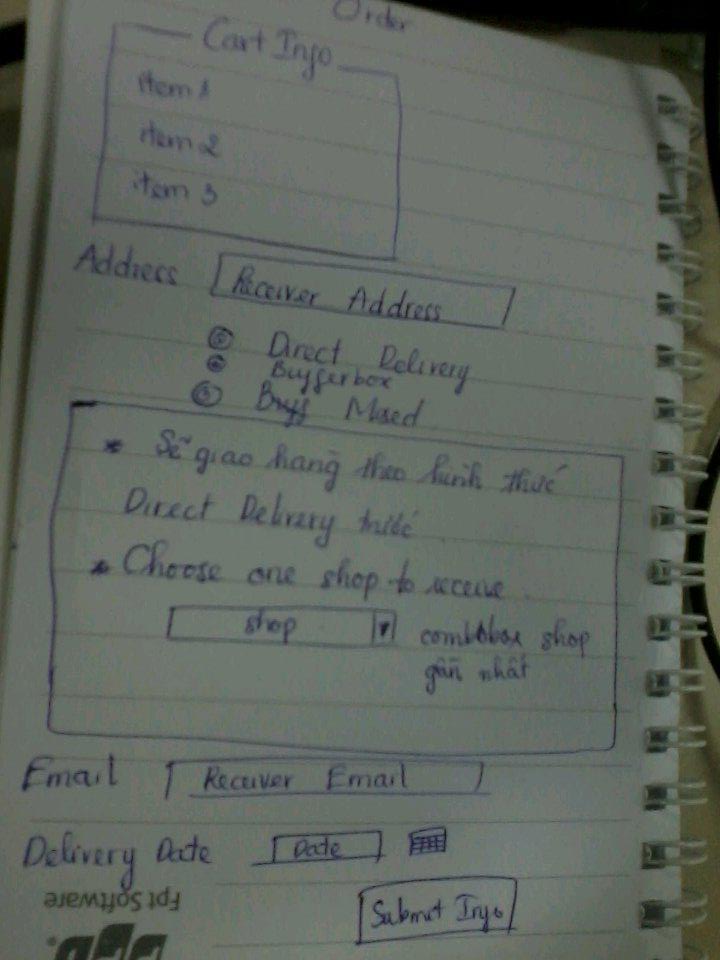 Order
Cart Info
item 1
item 2
item 3
Address Receiver Address
Direct Delivery
Bufferbox
Mixed
* Sẽ giao hàng theo hình thức
Direct Delivery trước
* Choose one shop to receive
shop combobox shop
gần nhất
Email Receiver Email
Delivery Date Date
Submit Info
Fpt Software